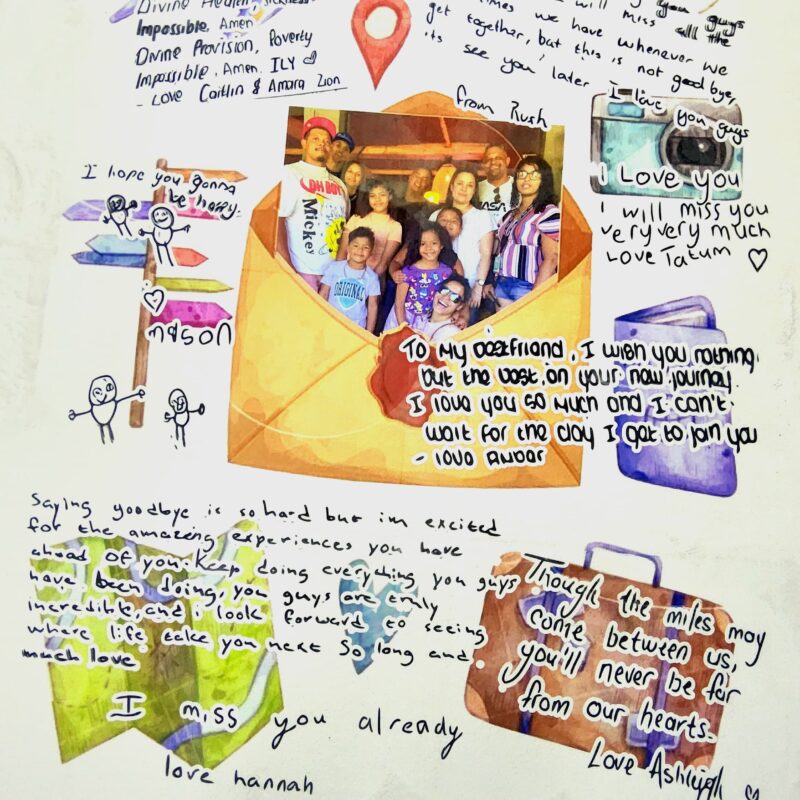 Divine Health, Sickness
Impossible, Amen
Divine Provision, Poverty
Impossible, Amen. ILY
- Love Caitlin & Amara Zion
you guys
will miss all the
times we have whenever we
get together, but this is not goodbye,
its see you later
I love you guys
from Rush
I Love you
I will miss you
very very much
Love Tatum
I hope you gonna
be happy.
mason
OH BOY
Mickey
ORIGINAL
To my bestfriend, I wish you nothing
but the best on your new journey.
I love you so much and I can't
wait for the day I get to join you
- love Amber
Saying goodbye is so hard but im excited
for the amazing experiences you have
ahead of you. Keep doing everything you guys
have been doing, you guys are truly
incredible, and i look forward to seeing
where life take you next so long and
much love
I miss you already
love hannah
Though the miles may
come between us,
you'll never be far
from our hearts.
Love Ashleigh